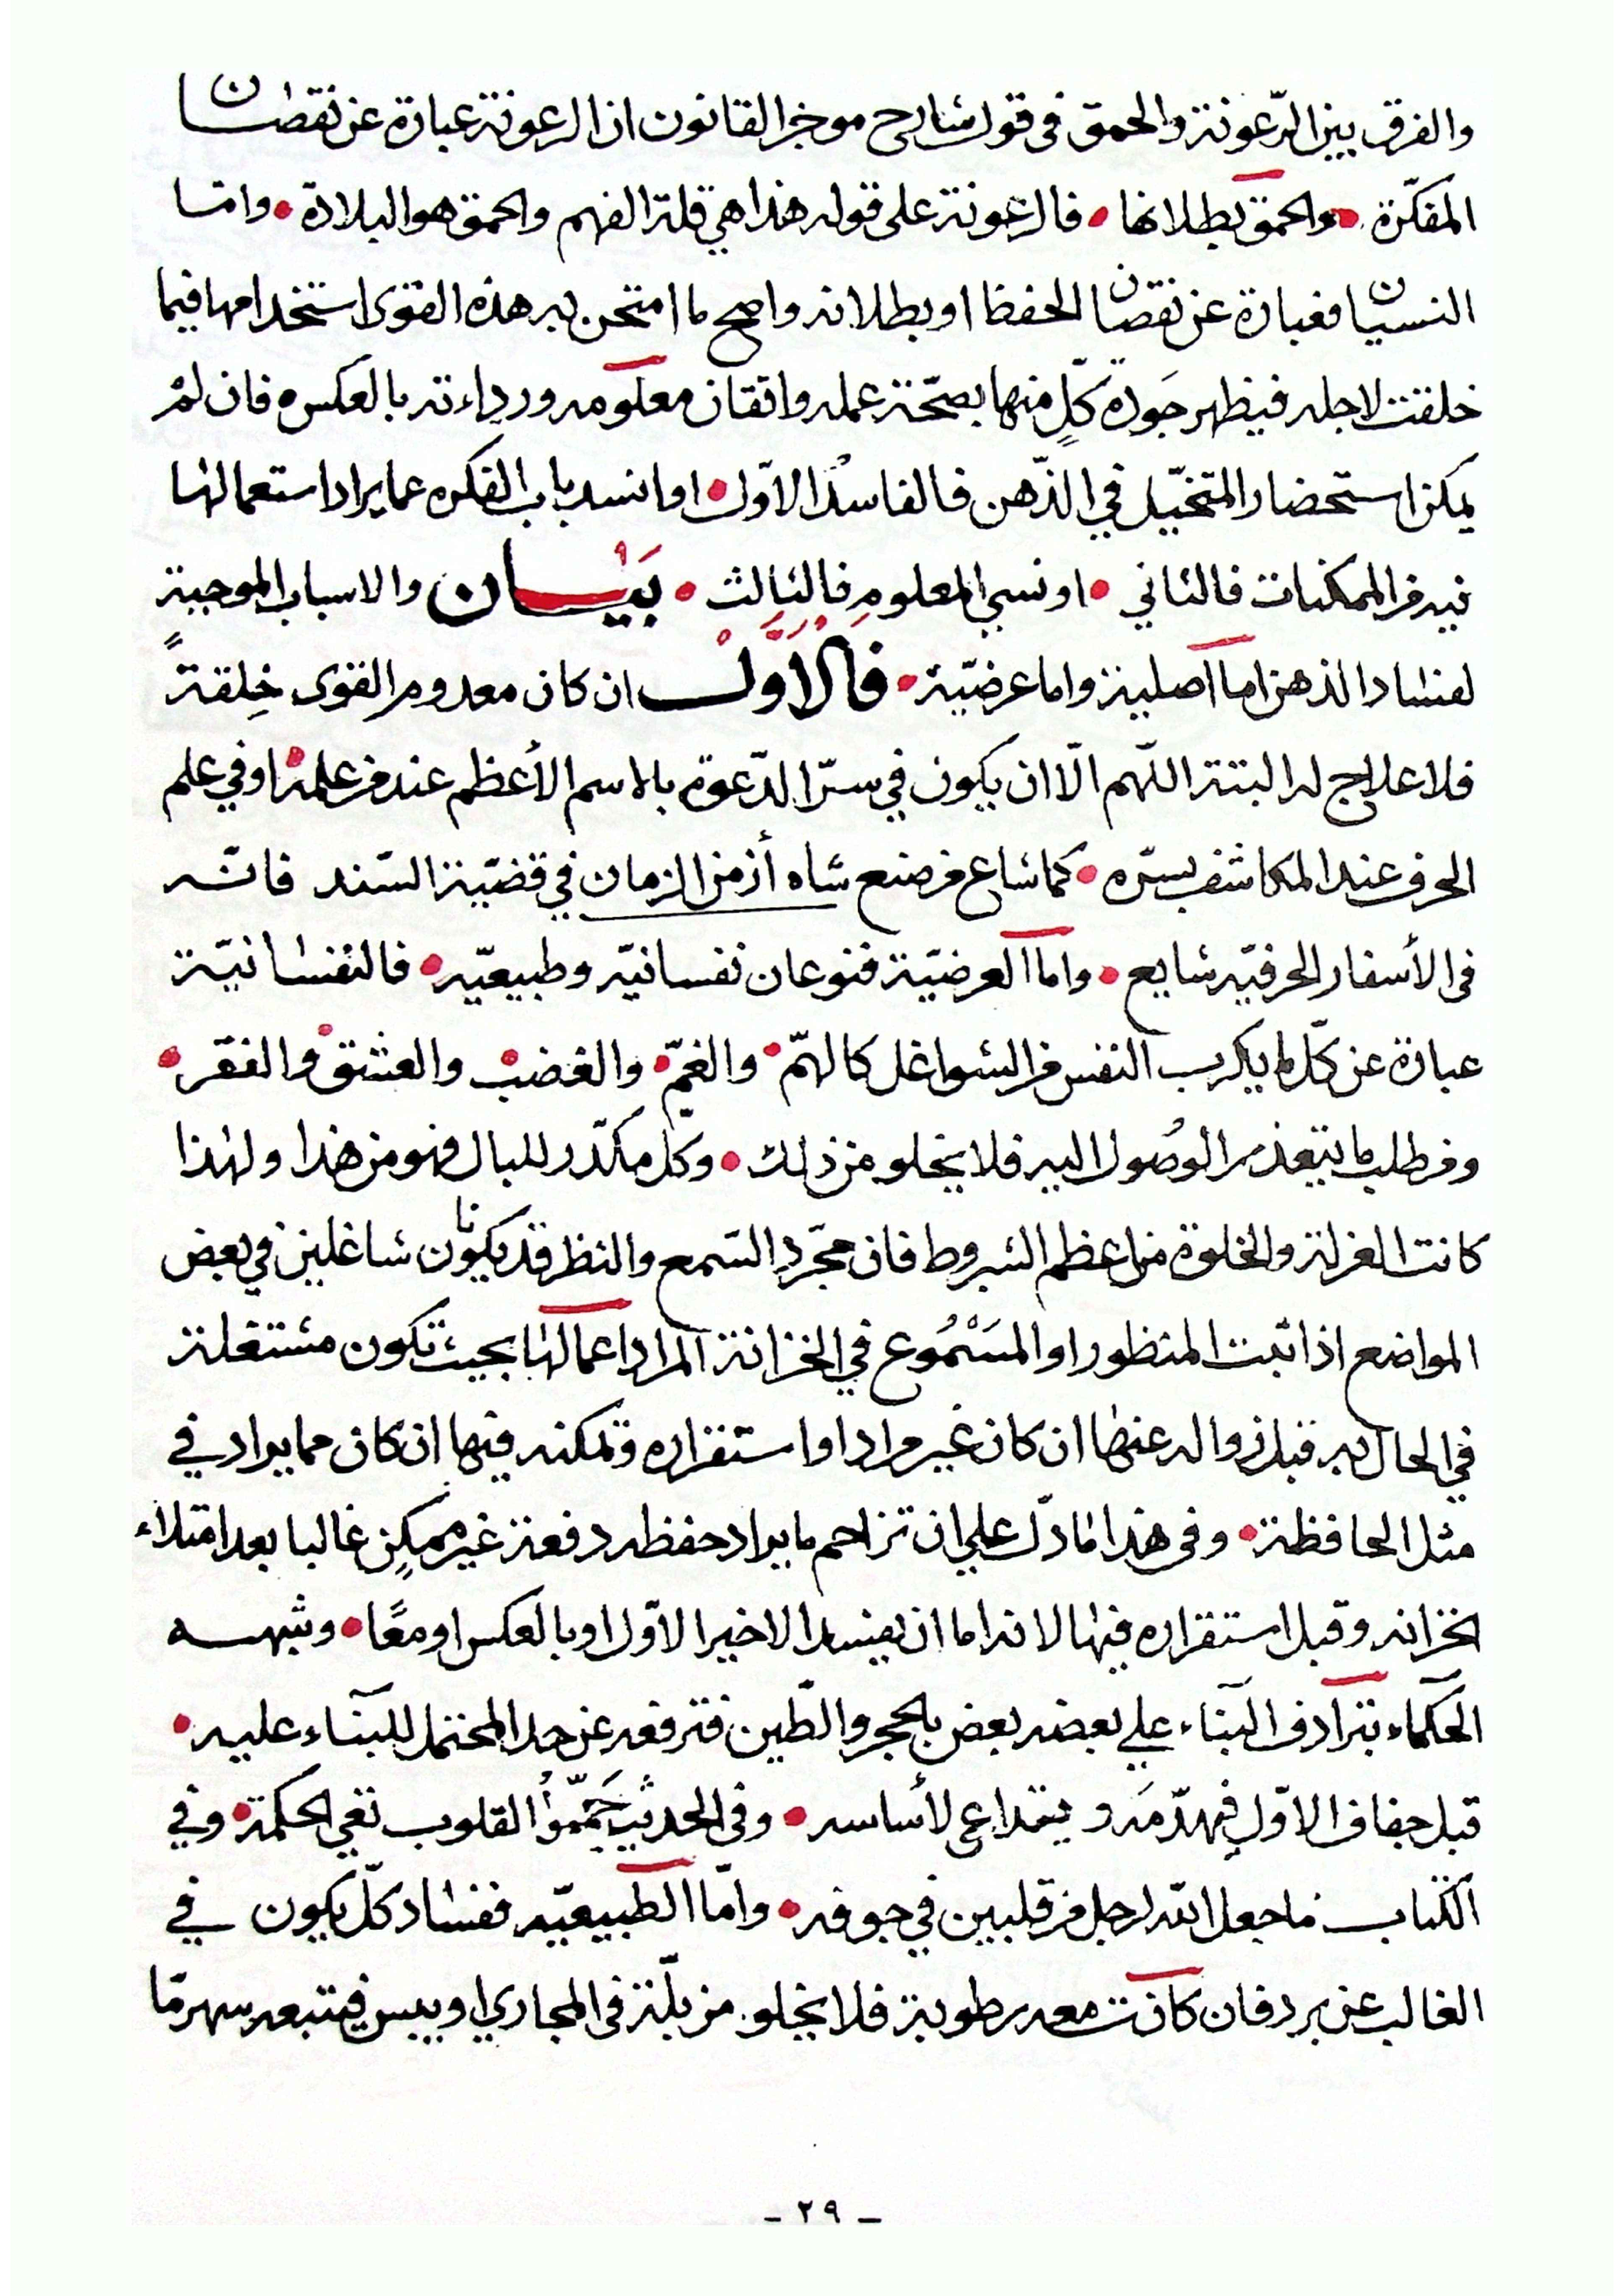 والفرق بين الرّعونة والحمق فى قول شارح موجز القانون ان الرعونة عبارة عن نقصان
المفكّرة • والحمق بطلانها • فالرعونة على قوله هذا هي قلة الفهم والحمق هو البلادة • واما
النسيان فعبارة عن نقصان الحفظ او بطلانه واصح ما امتحن به هذه القوى استخدامها فيما
خلقت لاجله فيظهر جَودة كلٍّ منها بصحّة عمله واتقان معلومه ورداءته بالعكس فان لمْ
يمكن استحضار المتخيّل في الذّهن فالفاسدْ الاوّل • او انسد باب الفكره عما يراد استعمالها
فيه من الممكنات فالثاني • او نسي المعلوم فالثالث • بَيَان والاسباب الموجبة
لفساد الذهن اما اصلية واما عرضيّة • فَالْاَوَّلْ ان كان معدوم القوى خِلقةً
فلا علاج له البتة اللّهم الّا ان يكون في سرّ الدّعوة بالاسم الأعظم عند من علمه • او في علم
الحرف عند المكاشف بسرّه • كما شاع من صنع شاه أزمن الزمان في قضيّة السّند فانّه
فى الأسفار الحرفيّه شايع • واما العرضيّة فنوعان نفسانيّه وطبيعيّه • فالنفسانيّة
عبارة عن كلّ ما يكرب النفس من الشواغل كالهمّ • والغمّ • والغضب • والعشق • والفقر •
ومن طلب ما يتعذر الوصُول اليه فلا يخلو من ذلك • وكل مكدّر للبال فهو من هذا ولهذا
كانت العزلة والخلوة من اعظم الشروط فان مجرّد السّمع والنظر قد يكونان شاغلين في بعض
المواضع اذا ثبت المنظور او المسَمُوع في الخزانة المراد اعمالها بحيث تكون مشتغلة
في الحال به قبل زواله عنها ان كان غير مراد او استقراره وتمكنه فيها ان كان مما يراد في
مثل الحافظة • وفى هذا ما دلّ على ان تزاحم ما يراد حفظه دفعة غير ممكِن غالبا بعد امتلاء
الخزانه وقبل استقراره فيها لانه اما ان يفسد الاخير الاوّل او بالعكس او معًا • وشبهه
الحكماء بترادف البناء على بعضه بعض بالحجر والطّين فترفعه عن حد المحتمل للبناء عليه •
قبل جفاف الاوّل فيهدّمَه ويتداعى لأساسه • وفى الحديث جَمِّمُوا القلوب تعي الحكمة • وفي
الكتاب ما جعل الله لرجل من قلبين في جوفه • وامّا الطبيعيّه ففساد كلّ يكون في
الغالب عن برد فان كانت معه رطوبة فلا يخلو من بلّة فى المجاري او يبس فيتبعه سهر مّا
ـ ٢٩ ـ